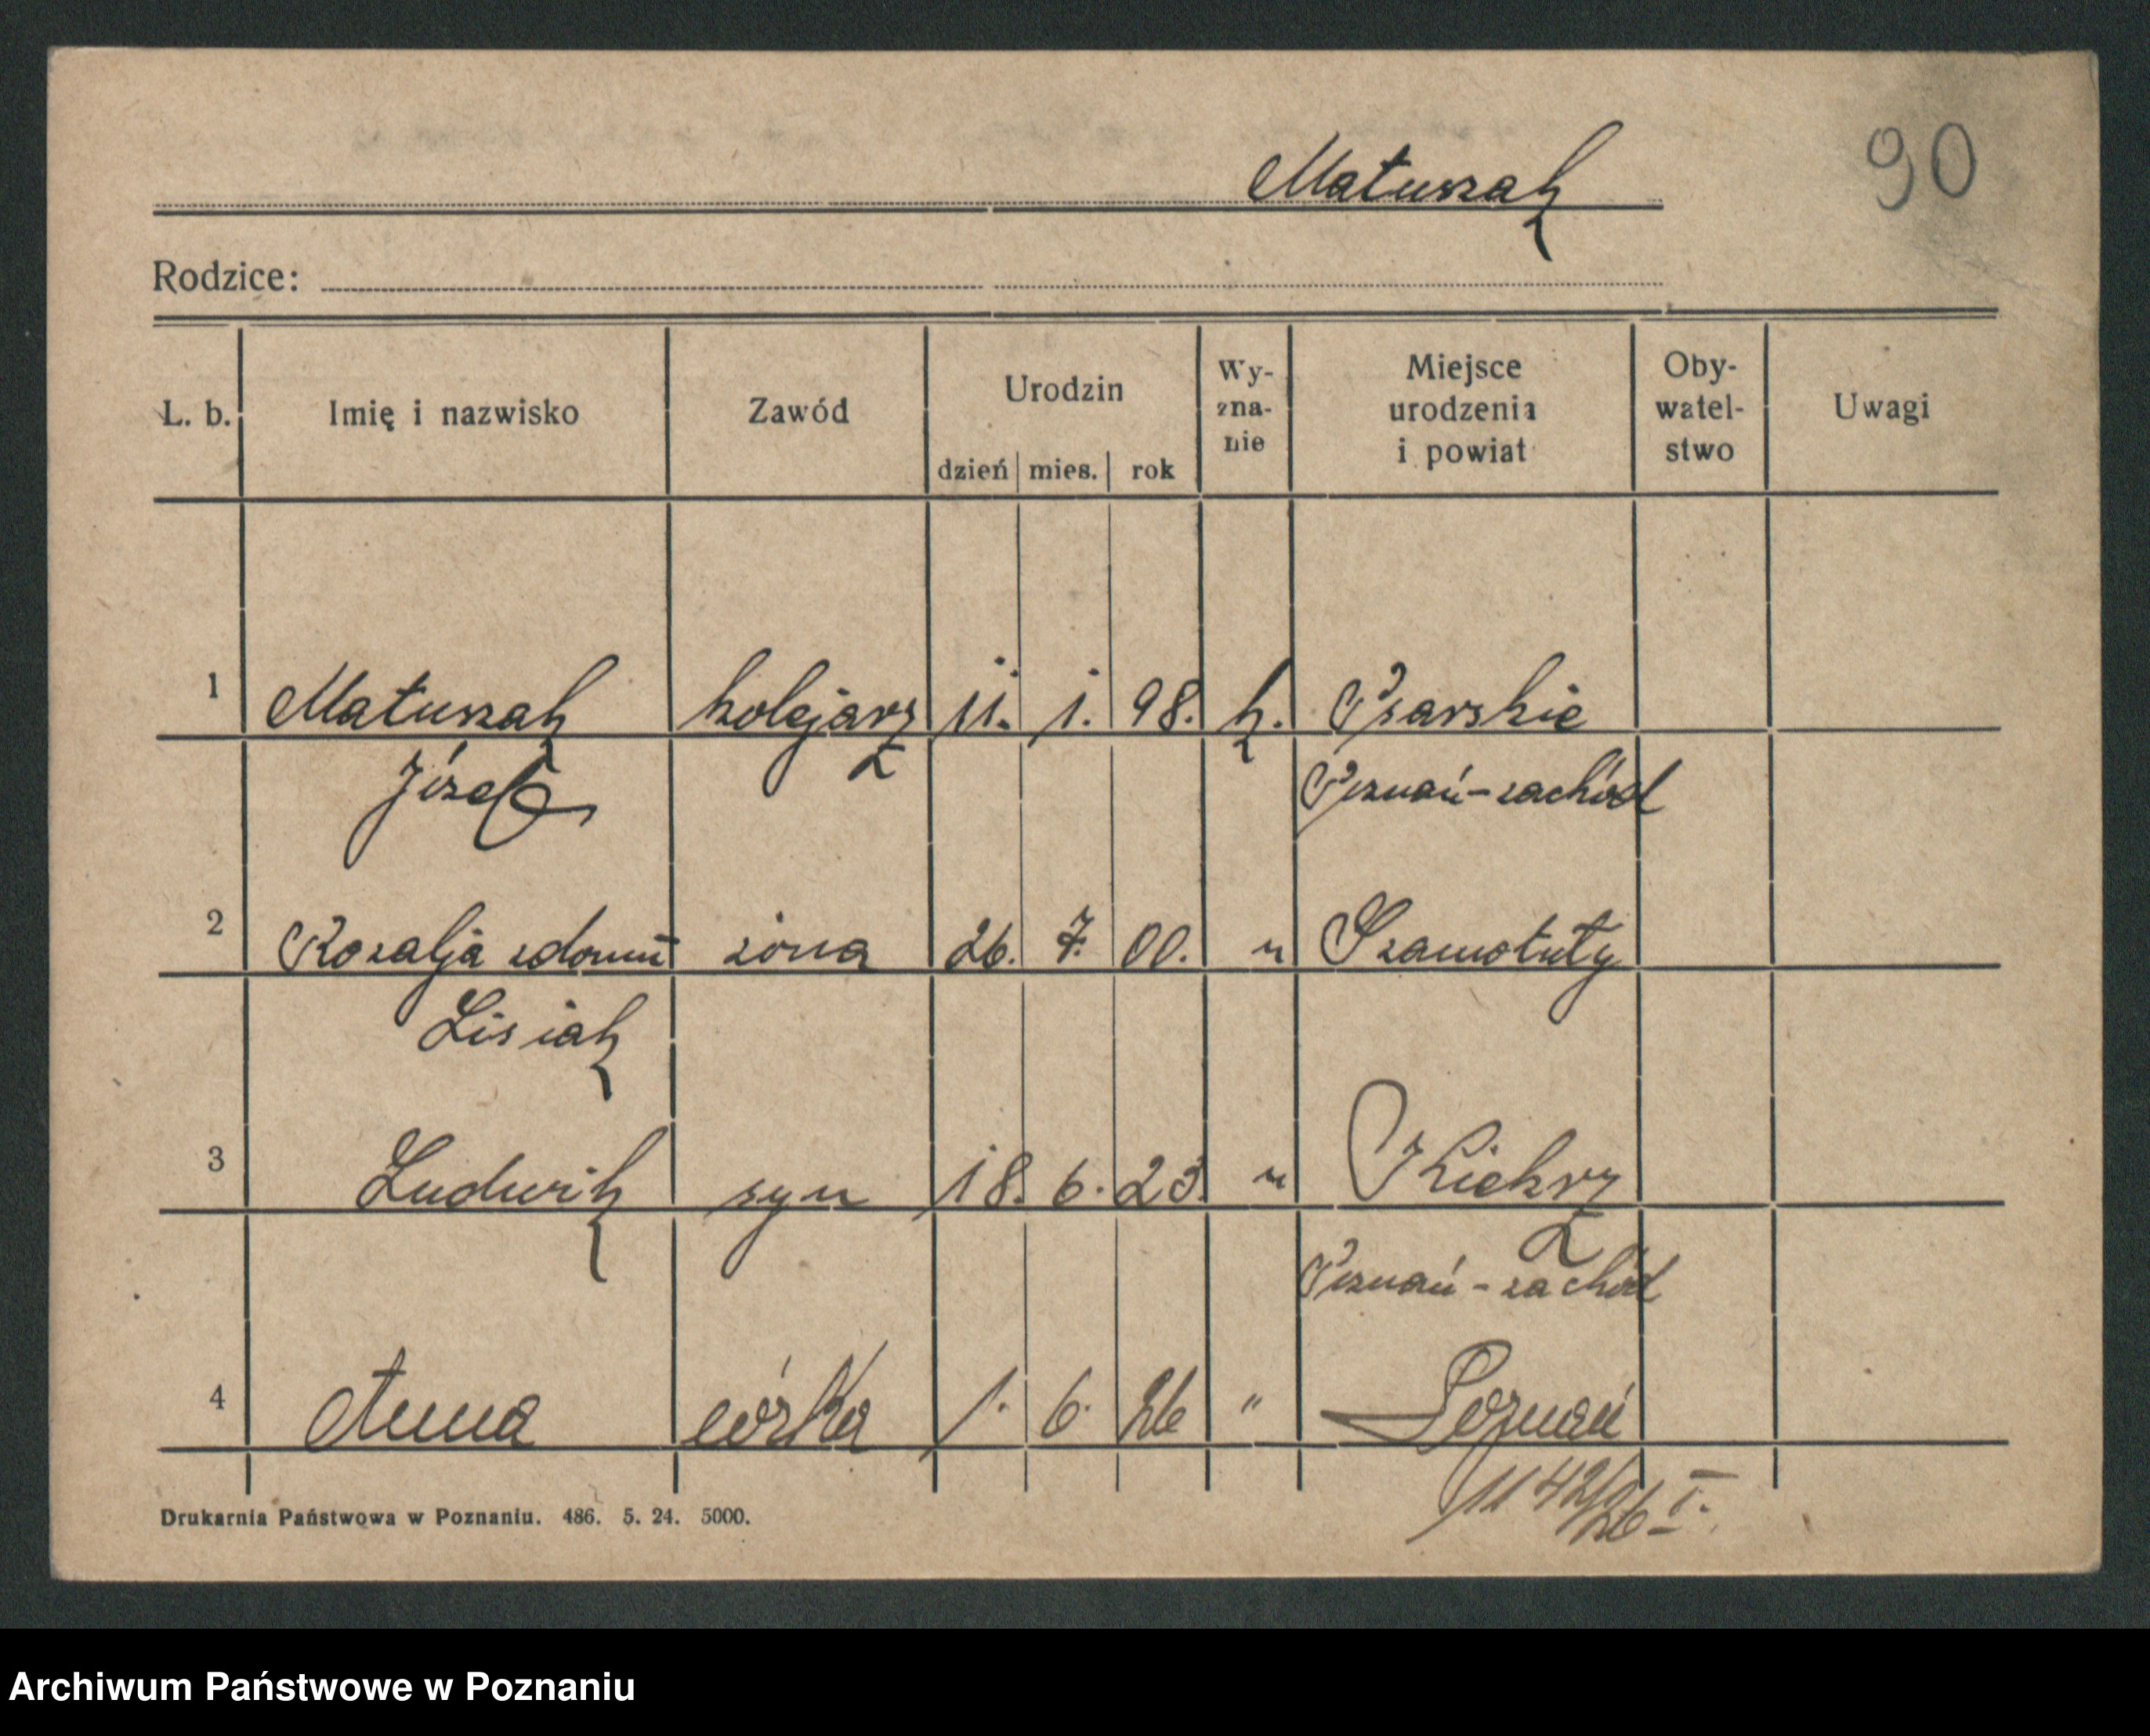 90
Matuszak
Rodzice:
L. b. Imię i nazwisko Zawód Urodzin dzień mies. rok Wy-zna-nie Miejsce urodzenia i powiat Oby-watel-stwo Uwagi
1 Matuszak kolejarz 11. 1. 98. k. Psarskie
Józef Poznań-zachód
2 Rozalja zdomu żona 26. 7. 00. " Szamotuły
Lisiak
3 Ludwik syn 18. 6. 23. " Kiekrz
Poznań-zachód
4 Anna córka 1. 6. 26 " Poznań
1142/26 I.
Drukarnia Państwowa w Poznaniu. 486. 5. 24. 5000.
Archiwum Państwowe w Poznaniu